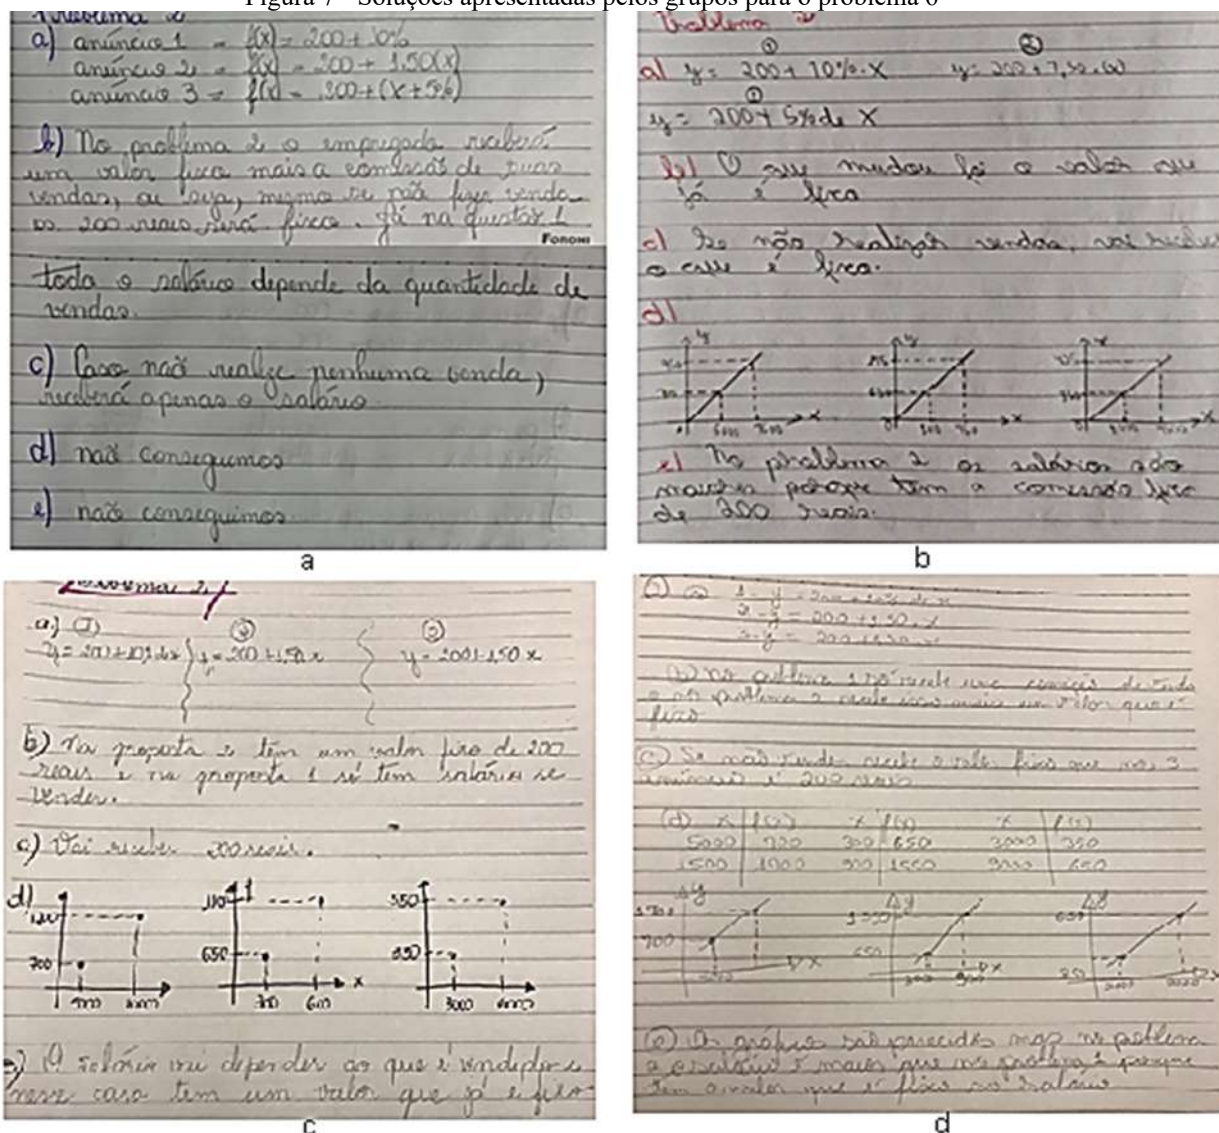 Figura 7 - Soluções apresentadas pelos grupos para o problema 6
Problema 2
a) anúncio 1 = f(x) = 200 + 10%
anúncio 2 = f(x) = 200 + 1,50(x)
anúncio 3 = f(x) = 200 + (x + 5%)
b) No problema 2 o empregado receberá
um valor fixo mais a comissão de suas
vendas, ou seja, mesmo se não fizer venda
os 200 reais será fixo. Já na questão 1
FORONI
todo o salário depende da quantidade de
vendas.
c) Caso não realize nenhuma venda,
receberá apenas o salário
d) não conseguimos
e) não conseguimos
a
Problema 2
① ②
a) y = 200 + 10%. x y = 200 +
y = 200 + 5% de x
b) O que mudou foi o valor que
já é fixo
c) Se não realizar vendas, vai receber
o que é fixo.
d)
y y x
x x x
0 5000 0 300 0
e) No problema 2 os salários são
maiores porque tem a comissão fixo
de 200 reais.
b
Problema 2
a) ① ② ③
y = 200 + 10% de x y = 200 + 1,50 x y = 200 + 1,50 x
b) Na proposta 2 têm um valor fixo de 200
reais e na proposta 1 só tem salário se
vender.
c) Vai receber 200 reais.
d)
650 550
700 350
x
300 600 3000
e) O salário vai depender do que é vendido
nesse caso tem um valor que já é fixo
c
a) 1 - y = 200 + 10% de x
2 - y = 200 + 1,50. x
3 - y = 200
b) No problema 1 só recebe uma comissão de venda
e no problema 2 recebe isso mais um valor que é
fixo
c) Se não vender recebe o valor fixo que nos 3
anúncios é 200 reais
d) x f(x) x f(x) x f(x)
5000 700 300 650 3000 350
1500 1700 900 1550 9000 650
y y y
1700 1550 650
700 650 350
x x x
e) Os gráficos são parecidos mas no problema
2 o salário é maior que no problema 1 porque
tem o valor que é fixo no salário
d